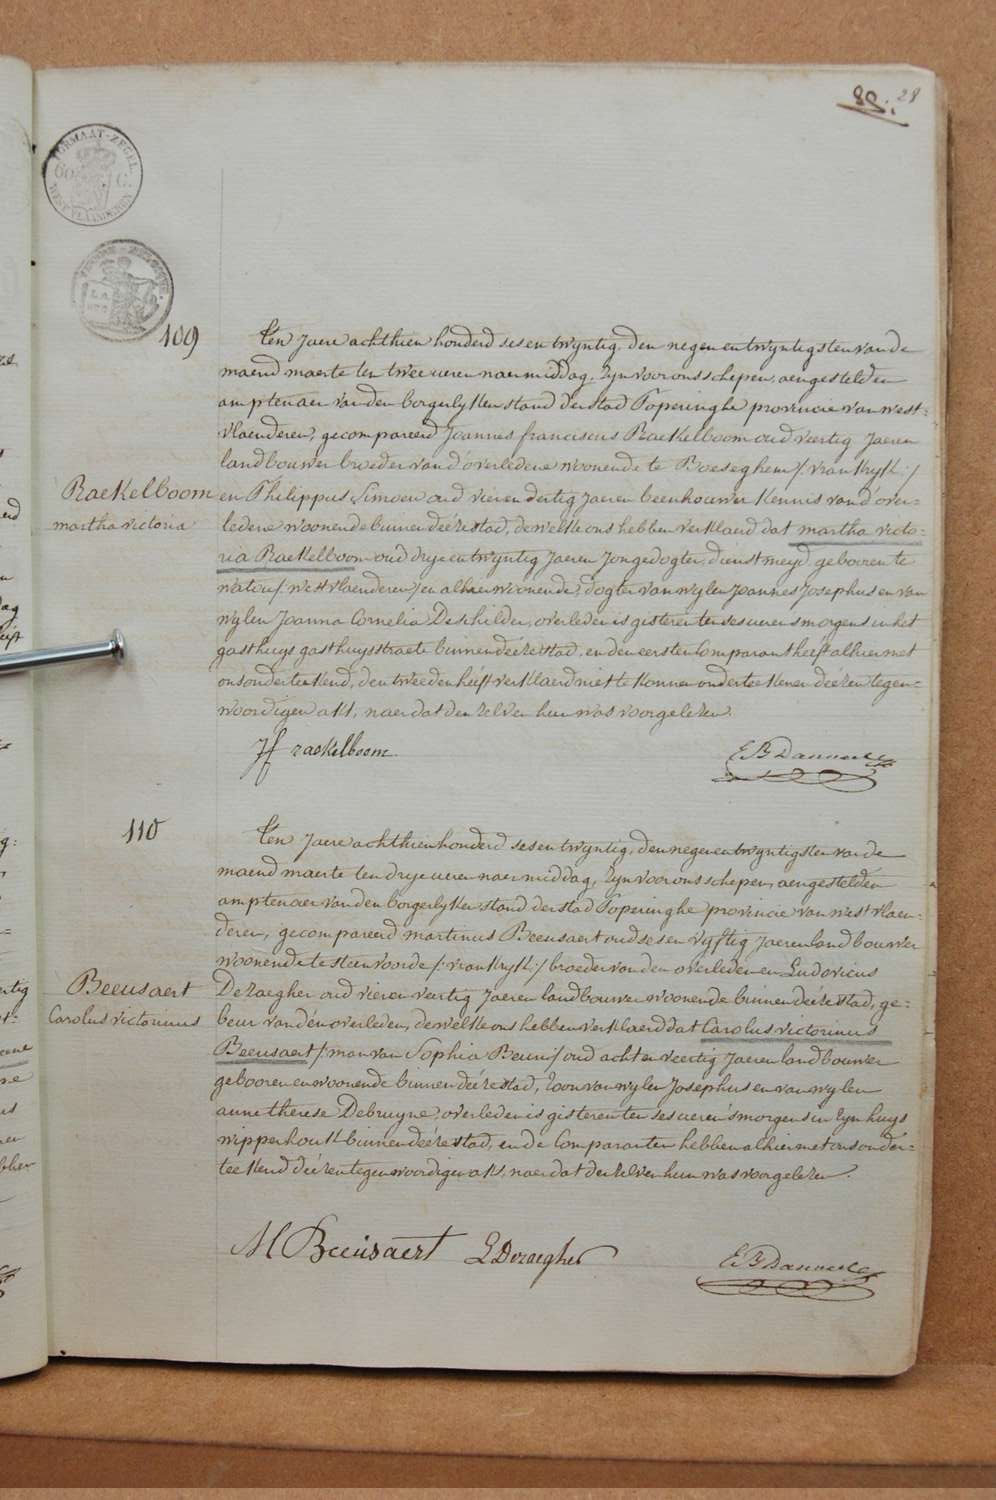 88. 28
FORMAAT-ZEGEL
60 C.
WEST VLAANDEREN
109
Ten Jaere achthien honderd sesentwyntig, den negenentwyntigsten van de
maend maerte ten twee ueren naermiddag, Zyn voor ons schepen, aengestelden
amptenaer van den borgerlyken stand der stad Poperinghe provincie van west=
vlaenderen, gecompareerd Joannes franciscus Raekelboom oud veertig Jaeren
landbouwer broeder van d'overledene woonende te Boeseghem /: vrankryk :/
Raekelboom
martha victoria
en Philippus Simoen oud vierendertig Jaeren beenhouwer kennis van d'over=
ledene woonende binnen deéze stad, dewelke ons hebben verklaerd dat martha victo=
ria Raekelboom oud dryentwyntig Jaeren Jonge dogter, dienstmeyd, gebooren te
watou /: westvlaenderen :/ en alhier woonende, dogter van wylen Joannes Josephus en van
wylen Joanna Cornelia Deschilder, overleden is gisteren ten ses ueren smorgens in het
gasthuys gasthuysstraete binnen deéze stad, en den eersten Comparant heéft alhier met
ons onderteekend, den tweeden heéft verklaerd niet te konnen onderteekenen deézen tegen=
woordigen akt, naer dat den zelven hun was voorgelezen.
Jf raekelboom
110
Ten Jaere achthien honderd sesentwyntig, den negenentwyntigsten van de
maend maerte ten drye ueren naermiddag, Zyn voor ons schepen, aengestelden
amptenaer van den borgerlyken stand der stad Poperinghe provincie van westvlaen=
deren, gecompareerd martinus Beeusaert oud sesenvyftig Jaeren landbouwer
woonende te steenvoorde /: vrankryk :/ broeder van den overledenen Ludovicus
Beeusaert
Carolus victorinus
Dezaegher oud vierenveertig Jaeren landbouwer woonende binnen deéze stad, ge=
beur van den overleden, dewelke ons hebben verklaerd dat Carolus victorinus
Beeusaert /: man van Sophia Beun :/ oud achtenveertig Jaeren landbouwer
gebooren en woonende binnen deéze stad, Zoon van wylen Josephus en van wylen
anne therese Debruyne, overleden is gisteren ten ses ueren smorgens in Zyn huys
wipperhoek binnen deéze stad, en de Comparanten hebben alhier met ons onder=
teekend deézen tegenwoordigen akt, naer dat den zelven hun was voorgelezen.
M Beeusaert L Dezaegher